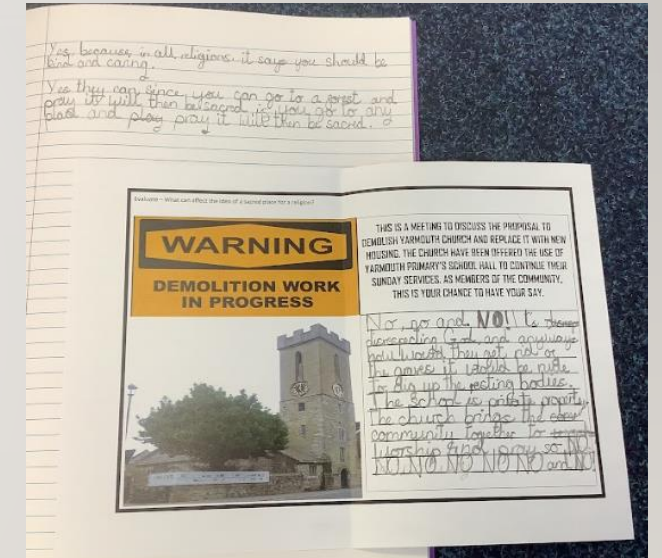 Yes, because in all religions it says you should be
kind and caring.
Yes they can since you can go to a forest and
pray it will then be sacred if you go to any
place and play pray it will then be sacred.
Evaluate – What can affect the idea of a sacred place for a religion?
WARNING
DEMOLITION WORK
IN PROGRESS
THIS IS A MEETING TO DISCUSS THE PROPOSAL TO
DEMOLISH YARMOUTH CHURCH AND REPLACE IT WITH NEW
HOUSING. THE CHURCH HAVE BEEN OFFERED THE USE OF
YARMOUTH PRIMARY'S SCHOOL HALL TO CONTINUE THEIR
SUNDAY SERVICES. AS MEMBERS OF THE COMMUNITY,
THIS IS YOUR CHANCE TO HAVE YOUR SAY.
No, no and, NO! It's
disrespecting God, and anyways
how would they get rid of
the graves it would be rude
to dig up the resting bodies.
The school is private property.
The church brings the
community together to
worship and pray so NO
NO NO NO NO NO and NO!